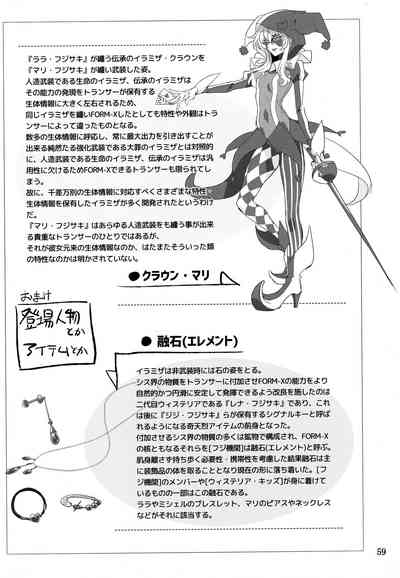 『ララ・フジサキ』が纏う伝承のイラミザ・クラウンを
『マリ・フジサキ』が纏い武装した姿。
人造武装である生命のイラミザ、伝承のイラミザは
その能力の発現をトランサーが保有する
生体情報に大きく左右されるため、
同じイラミザを纏いFORM-Xしたとしても特性や外観はトラ
ンサーによって違ったものとなる。
数多の生体情報に呼応し、常に最大出力を引き出すことが
出来る純然たる強化武装である大罪のイラミザとは対照的
に、人造武装である生命のイラミザ、伝承のイラミザは汎
用性に欠けるためFORM-Xできるトランサーも限られてしま
う。
故に、千差万別の生体情報に対応すべくさまざまな特性、
生体情報を保有したイラミザが多く開発されたというわけ
だ。
『マリ・フジサキ』はあらゆる人造武装をも纏う事が出来
る貴重なトランサーのひとりではあるが、
それが彼女元来の生体情報なのか、はたまたそういった類
の特性なのかは明かされていない。
●クラウン・マリ
おまけ
登場人物
とか
アイテムとか
●融石(エレメント)
イラミザは非武装時には石の姿をとる。
シス界の物質をトランサーに付加させFORM-Xの能力をより
自然的かつ円滑に安定して発揮できるよう改良を施したのは
二代目ウィステリアである『レナ・フジサキ』であり、これ
は後に『ジジ・フジサキ』らが保有するシグナルキーと呼ば
れるようになる奇天烈アイテムの前身となった。
付加させるシス界の物質の多くは鉱物で構成され、FORM-X
の核ともなるそれらを[フジ機関]は融石(エレメント)と呼ぶ。
肌身離さず持ち歩く必要性・携帯性を考慮した結果融石は主
に装飾品の体を取ることとなり現在の形に落ち着いた。[フ
ジ機関]のメンバーや[ウィステリア・キッズ]が身に着けて
いるものの一部はこの融石である。
ララやミシェルのブレスレット、マリのピアスやネックレス
などがそれに該当する。
59